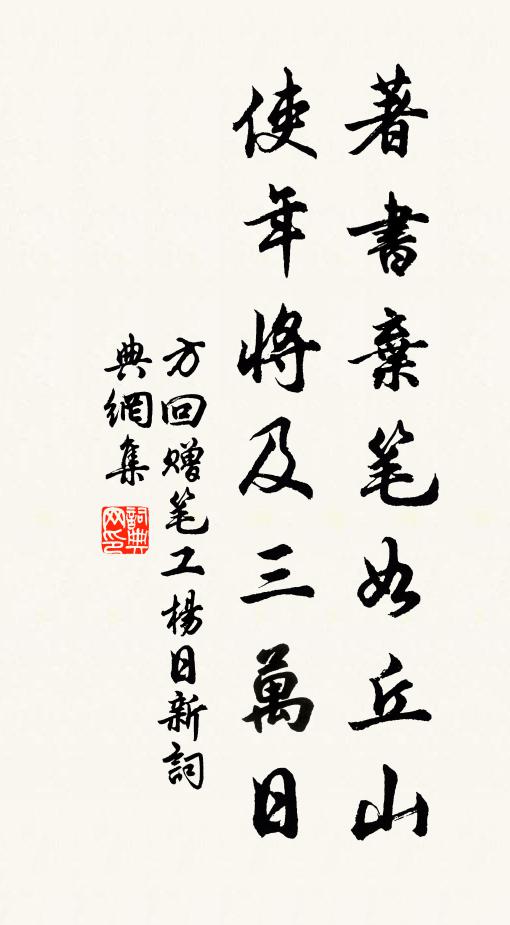 著書棄笔如丘山
使年將及三萬日
方回贈笔工楊日新詞
典網集
詞典
网印